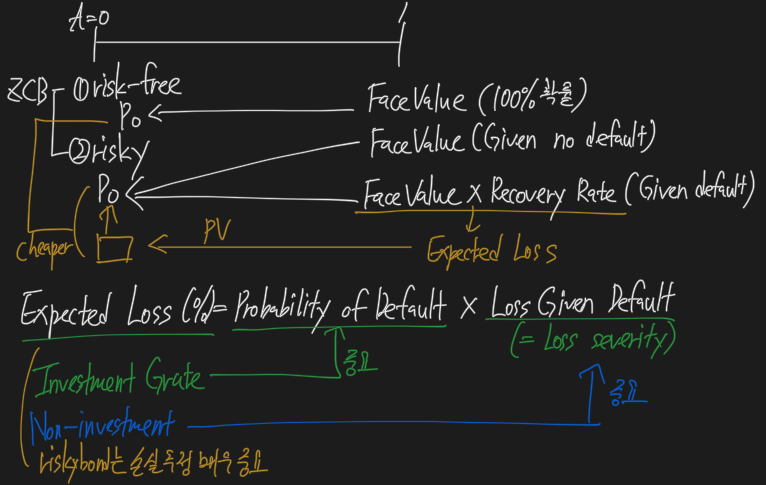 A=0 1
ZCB ① risk-free
P₀ Face Value (100% 확률)
② risky Face Value (Given no default)
P₀ Face Value × Recovery Rate (Given default)
cheaper PV Expected Loss
Expected Loss (%) = Probability of Default × Loss Given Default
(= Loss severity)
중요
Investment Grate
중요
Non-investment
risky bond는 손실측정 매우 중요